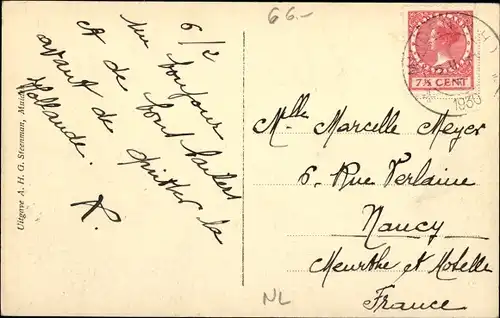 66-
6/2
un bonjour
et de bons baisers
avant de quitter la
Hollande.
R.
Uitgave A. H. G. Steenman,
7½ CENT
1930
Mlle Marcelle Meyer
6, Rue Verlaine
Nancy
Meurthe et Moselle
France
NL